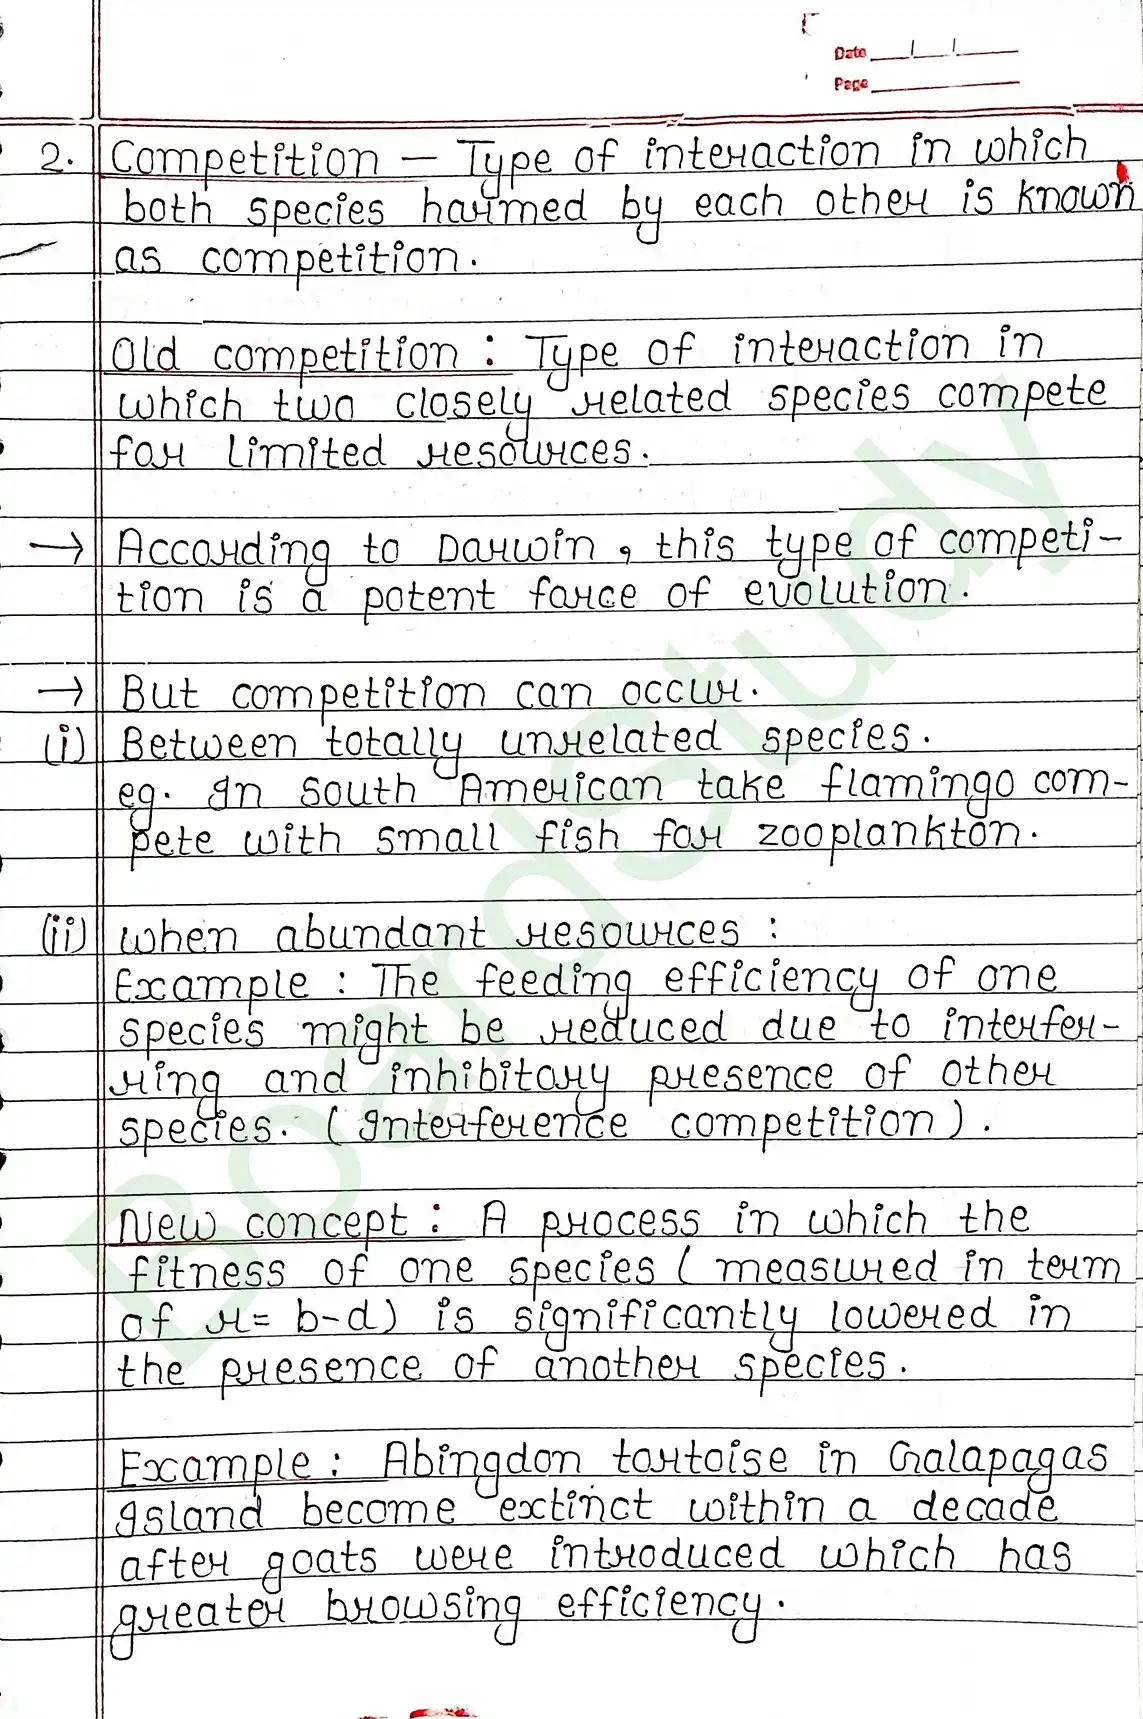 Date
Page
2. Competition — Type of interaction in which
both species harmed by each other is known
as competition.
Old competition : Type of interaction in
which two closely related species compete
for limited resources.
→ According to Darwin, this type of competi-
tion is a potent force of evolution.
→ But competition can occur.
(i) Between totally unrelated species.
eg. In south American take flamingo com-
pete with small fish for zooplankton.
(ii) when abundant resources :
Example : The feeding efficiency of one
species might be reduced due to interfer-
ring and inhibitory presence of other
species. (Interference competition).
New concept : A process in which the
fitness of one species (measured in term
of r= b-d) is significantly lowered in
the presence of another species.
Example : Abingdon tortoise in Galapagas
Island become extinct within a decade
after goats were introduced which has
greater browsing efficiency.
BoardStudy